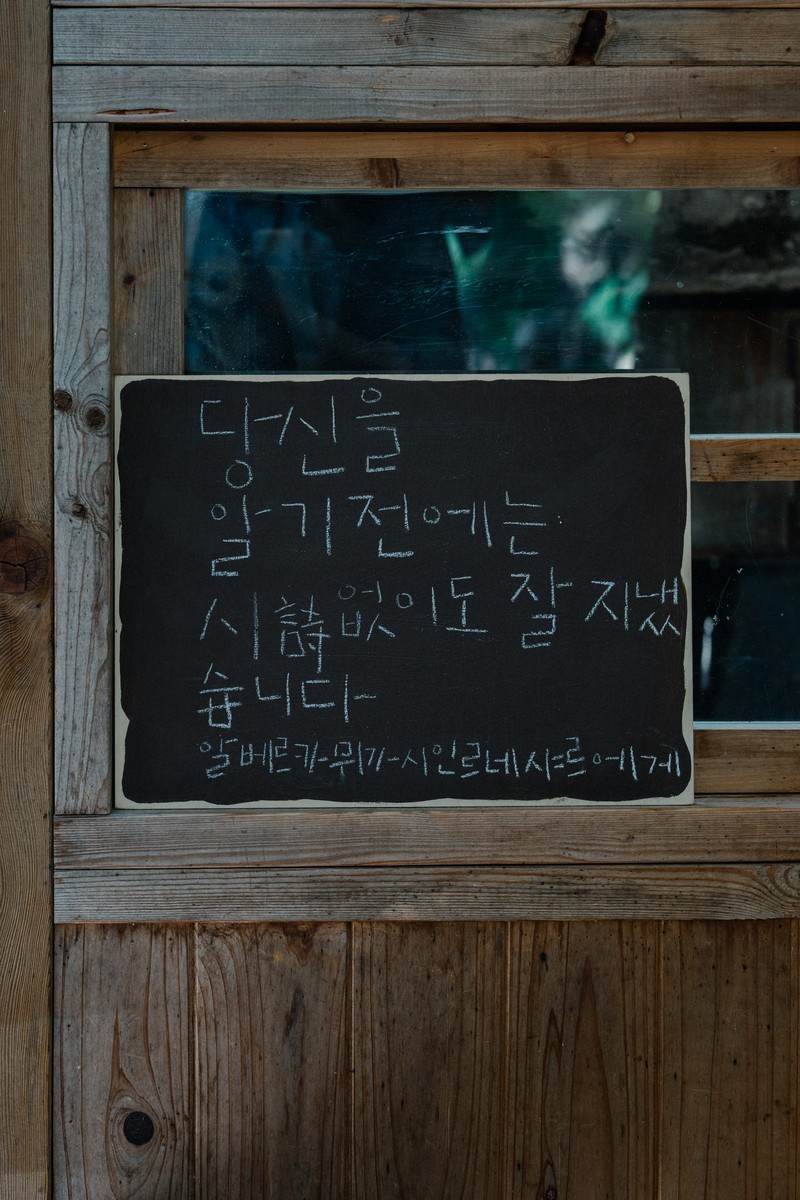 당신을
알기전에는
시詩없이도 잘 지냈
습니다
알베르카뮈가 시인르네샤르에게